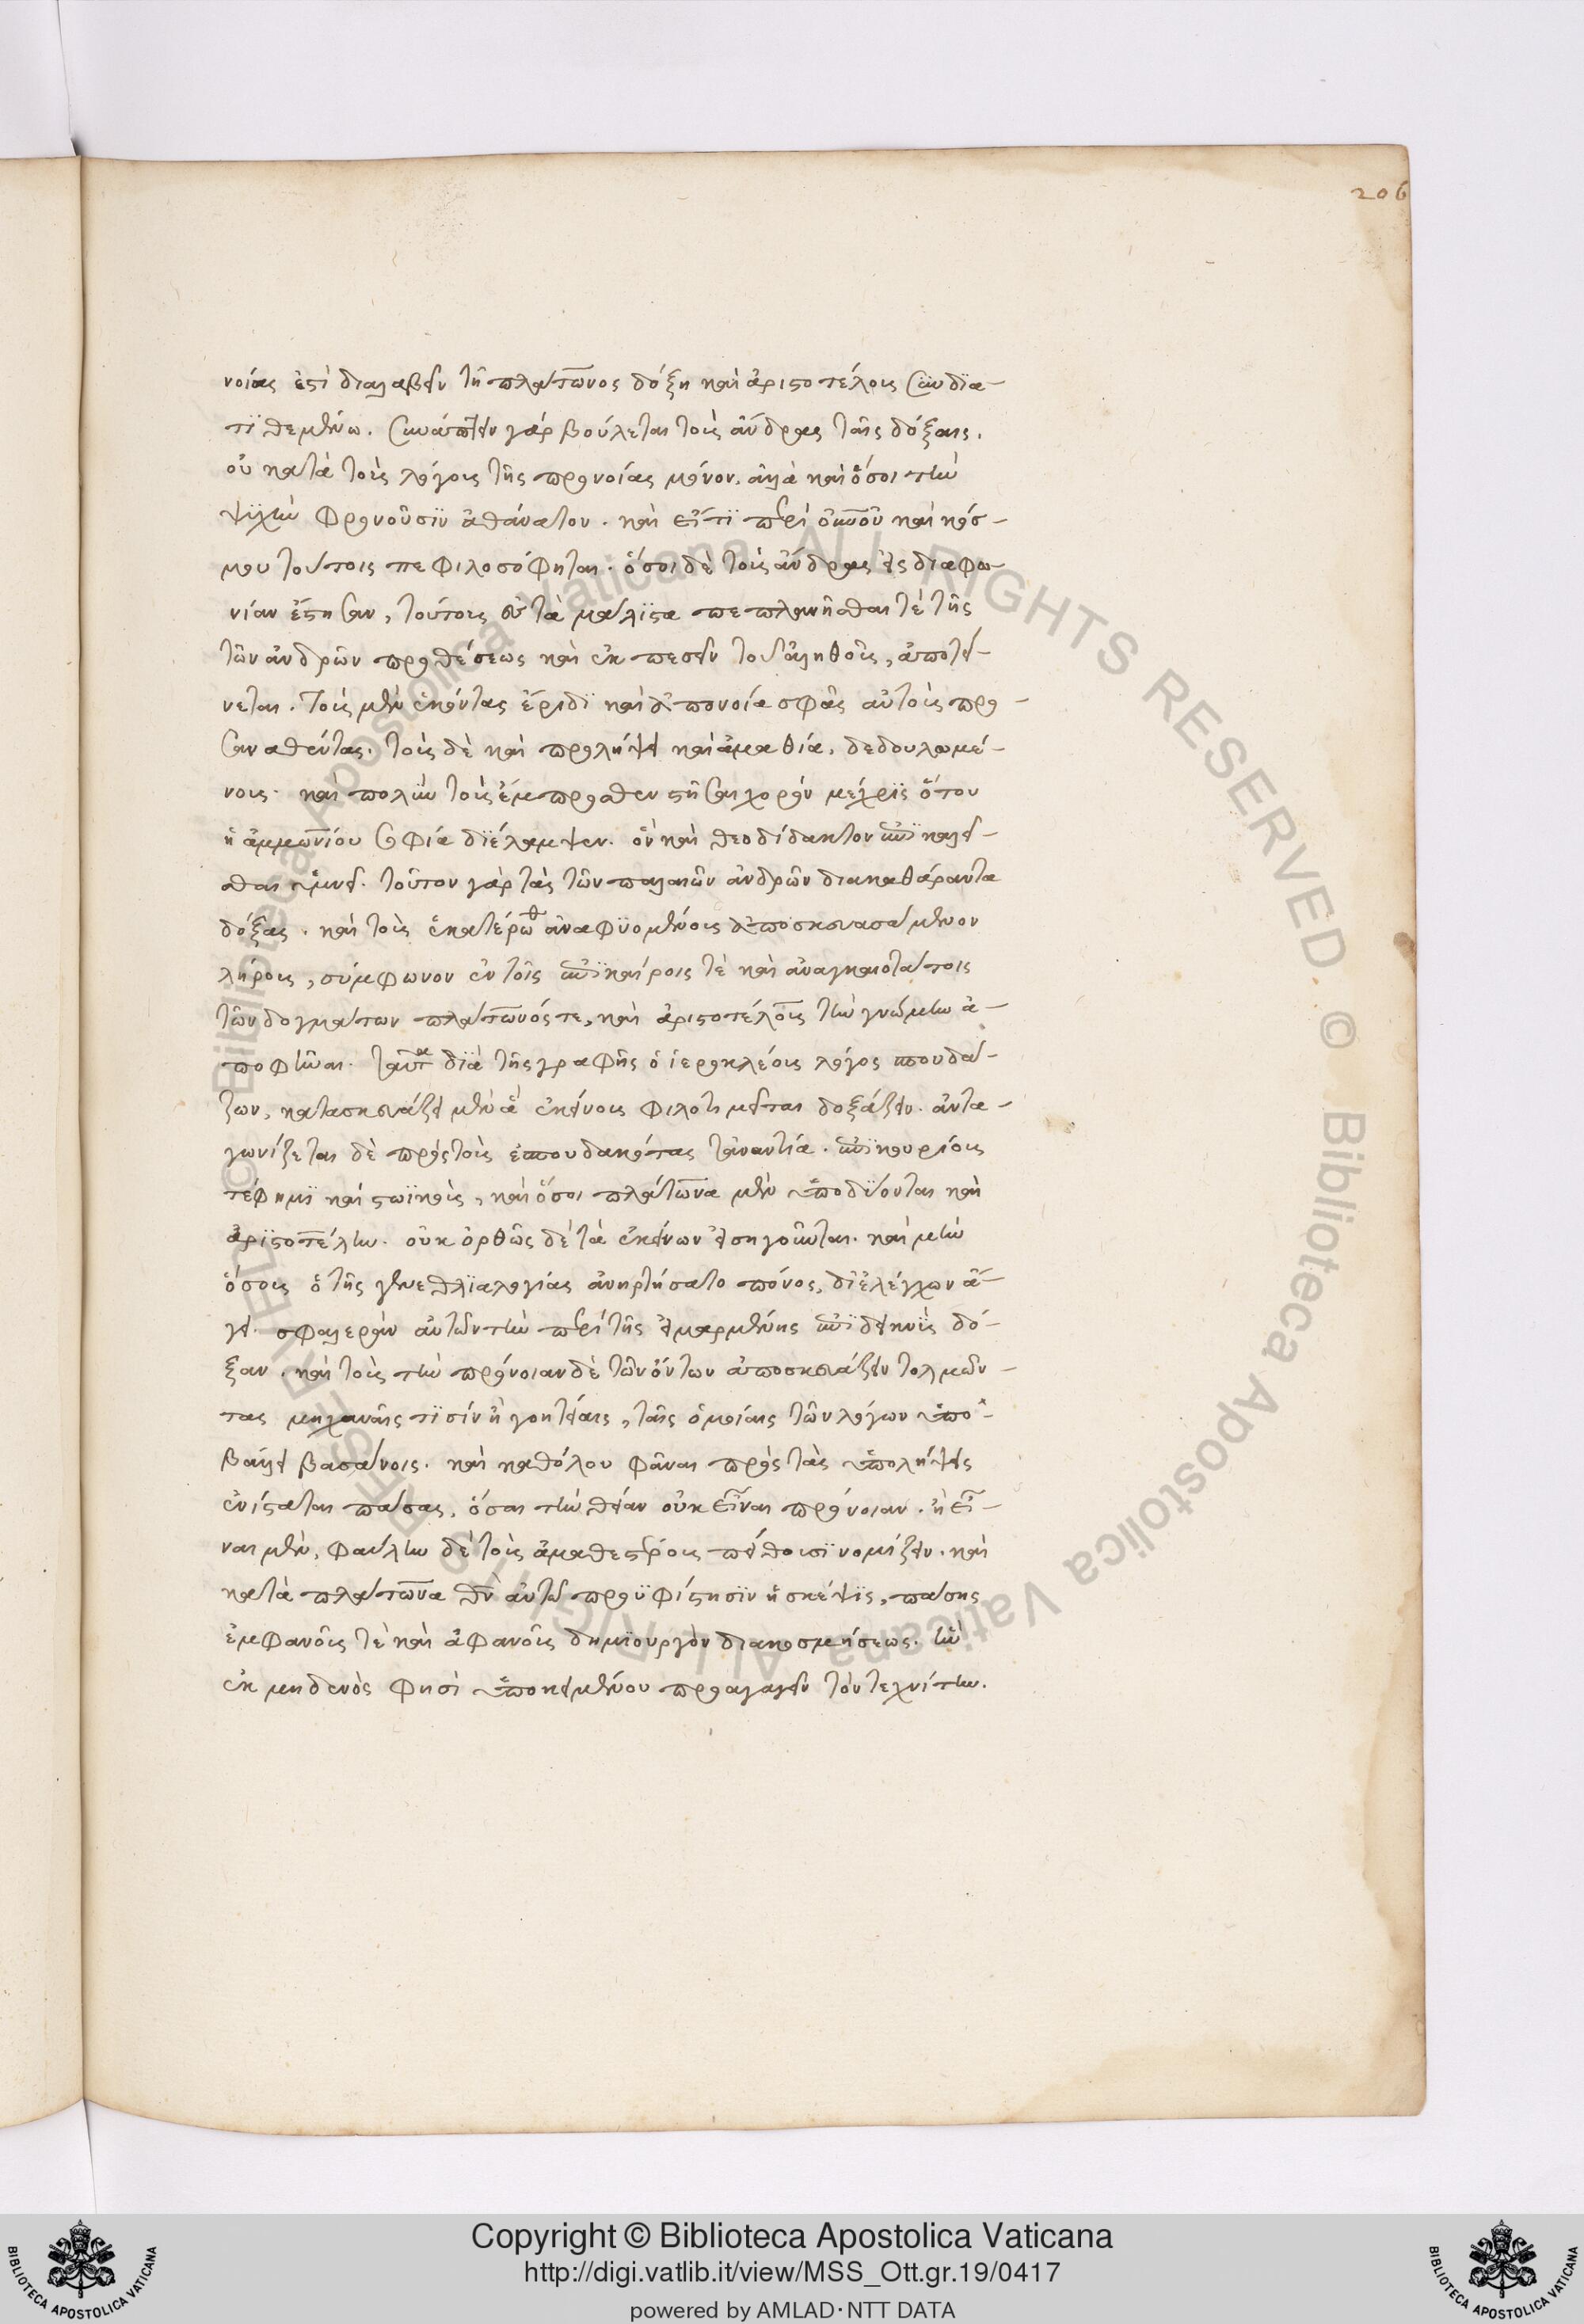 206
νοίας ἐστὶ διαλαβεῖν τῆ πλάτωνος δόξη καὶ ἀριστοτέλους συνδια-
τιθεμένω. συνάπτειν γάρ βούλεται τοὺς ἄνδρας ταῖς δόξαις.
οὐ κατὰ τοὺς λόγους τῆς προνοίας μόνον. ἀλλὰ καὶ ὅσοι τὴν
ψυχὴν φρονοῦσϊν ἀθάνατον. καὶ εἴ τϊ περὶ οὐρανοῦ καὶ κόσ-
μου τούτοις πεφιλοσόφηται. ὅσοι δὲ τοὺς ἄνδρας εἰς διαφω-
νίαν ἔστησαν, τούτους ὡς τὰ μάλιστα πεπλανῆσθαι τέ τῆς
τῶν ἀνδρῶν προθέσεως καὶ ἐκπεσεῖν τοῦ ἀληθοῦς, ἀποτεί-
νεται. τοὺς μὲν ἑκόντας ἔριδϊ καὶ ἀπονοία σφᾶς αὐτοὺς προ-
αναθέντας. τοὺς δὲ καὶ προλήψει καὶ ἀμαθία, δεδουλωμέ-
νους. καὶ πολὺν τοὺς ἔμπροσθεν στῆσαι χορόν μέχρϊς ὅτου
ἡ ἀμμωνίου σοφία διέλαμψεν. ὃν καὶ θεοδίδακτον ἐπϊκαλεῖ-
σθαι ὑμνεῖ. τοῦτον γὰρ τὰς τῶν παλαιῶν ἀνδρῶν διακαθάραντα
δόξας. καὶ τοὺς ἑκατέρωθ ἀναφυομένους ἀποσκευασάμενον
λήρους, σύμφωνον ἐν τοῖς ἐπϊκαίροις τὲ καὶ ἀναγκαιοτάτοις
τῶν δογμάτων πλάτωνός τε, καὶ ἀριστοτέλους τὴν γνώμην ἀ-
ποφῆναι. ταῦτα διὰ τῆς γραφῆς ὁ ἱεροκλέους λόγος σπουδά-
ζων, κατασκευάζει μὲν ἃ ἐκείνους φιλοτιμεῖται δοξάζειν. ἀντα-
γωνίζεται δὲ πρὸς τοὺς ἐσπουδακότας τἀναντία. ἐπϊκουρίους
τέ φημϊ καὶ στωϊκοὺς, καὶ ὅσοι πλάτωνα μὲν ὑποδύονται καὶ
ἀρϊστοτέλην. οὐκ ὀρθῶς δὲ τὰ ἐκείνων εἰσηγοῦνται. καὶ μὴν
ὅσους ὁ τῆς γενεθλϊαλογίας ἀνηρτήσατο πόνος, διελέγχων ἄ-
γει. σφαλερὰν αὐτῶν τὴν περὶ τῆς εἱμαρμένης ἐπϊδεικνὺς δό-
ξαν. καὶ τοὺς τὴν πρόνοιαν δὲ τῶν ὄντων ἀποσκευάζειν τολμῶν-
τας μηχαναῖς τϊσίν ἢ γοητείαις, ταῖς ὁμοίαις τῶν λόγων ὑπο-
βάλλει βασάνοις. καὶ καθόλου φᾶναι πρὸς τὰς ὑπολήψεις
ἐνίσταται πάσας, ὅσαι τὴν θείαν οὐκ εἶναι πρόνοιαν. ἢ εἶ-
ναι μὲν, φαύλην δὲ τοὺς ἀμαθεστέρους πείθουσϊ νομίζειν. καὶ
κατὰ πλάτωνα θεὸν αὐτῶ προϋφίστησϊν ἡ σκέψϊς, πάσης
ἐμφανοῦς τὲ καὶ ἀφανοῦς δημϊουργὸν διακοσμήσεως. ἣν
ἐκ μηδενὸς φησὶ ὑποκειμένου προαγαγεῖν τὸν τεχνίτην.
© Biblioteca Apostolica Vaticana ALL RIGHTS RESERVED. © Biblioteca Apostolica Vaticana ALL RIGHTS RESERVED.
Copyright © Biblioteca Apostolica Vaticana
http://digi.vatlib.it/view/MSS_Ott.gr.19/0417
powered by AMLAD·NTT DATA
BIBLIOTECA APOSTOLICA VATICANA
BIBLIOTECA APOSTOLICA VATICANA